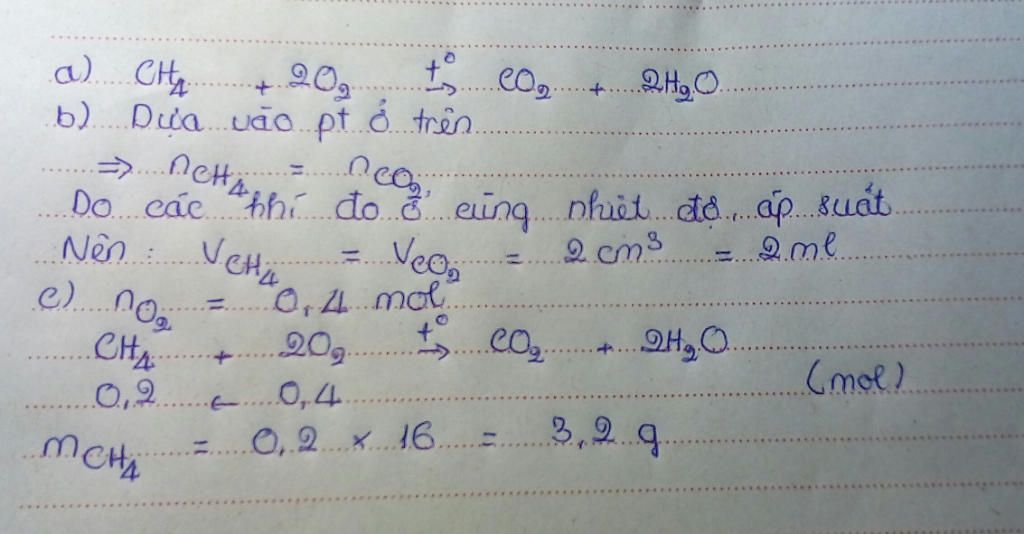 a) CH₄ + 2O₂ t°→ CO₂ + 2H₂O
b) Dựa vào pt ở trên
=> nCH₄ = nCO₂,
Do các khí đo ở cùng nhiệt độ, áp suất
Nên : VCH₄ = VCO₂ = 2 cm³ = 2 ml
c) nO₂ = 0,4 mol
CH₄ + 2O₂ t°→ CO₂ + 2H₂O
0,2 ← 0,4 (mol)
mCH₄ = 0,2 × 16 = 3,2 g